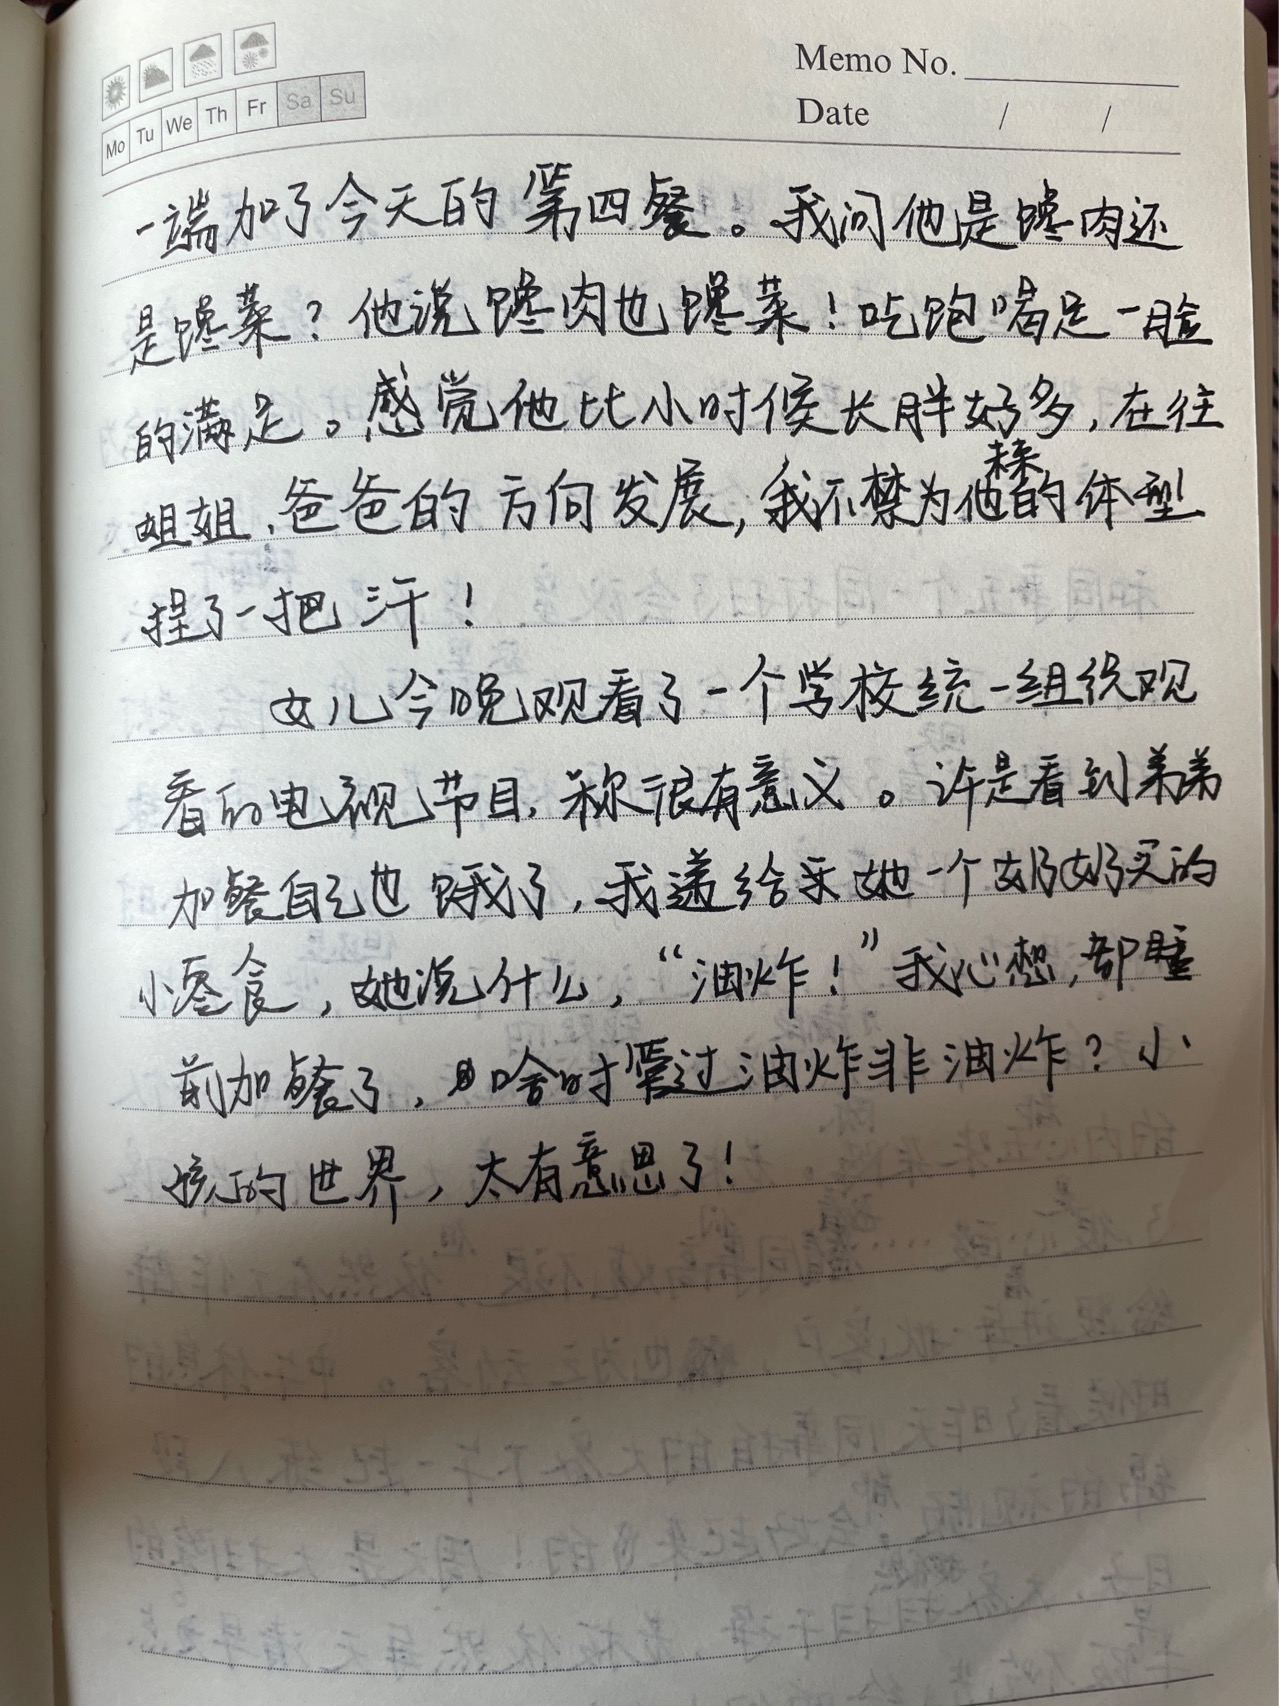 Memo No.
Mo Tu We Th Fr Sa Su
Date / /
一端加了今天的第四餐。我问他是馋肉还
是馋菜？他说馋肉也馋菜！吃饱喝足一脸
的满足。感觉他比小时候长胖好多，在往
姐姐、爸爸的方向发展，我不禁为他未来的体型
捏了一把汗！
女儿今晚观看了一个学校统一组织观
看的电视节目，称很有意义。许是看到弟弟
加餐自己也饿了，我递给她一个奶奶买的
小零食，她说什么，“油炸！”我心想，都睡
前加餐了，啥时管过油炸非油炸？小
孩的世界，太有意思了！